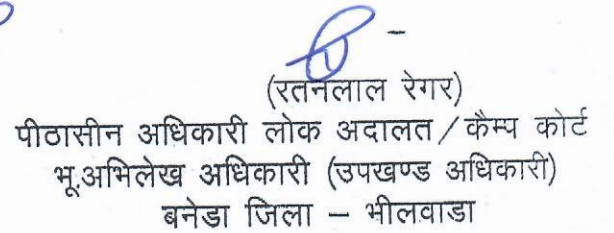 (रतनलाल रेगर)
पीठासीन अधिकारी लोक अदालत / कैम्प कोर्ट
भू.अभिलेख अधिकारी (उपखण्ड अधिकारी)
बनेडा जिला – भीलवाडा